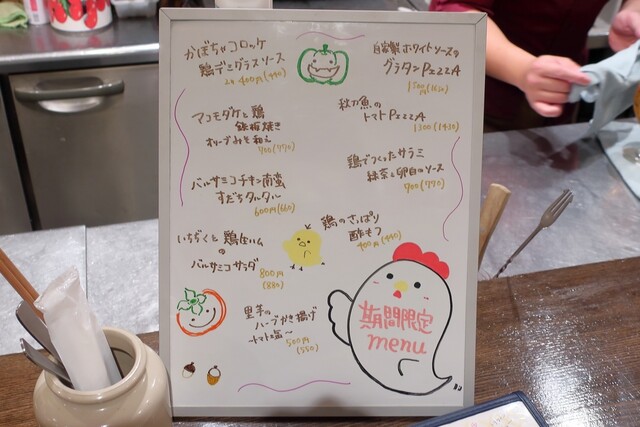 かぼちゃコロッケ
鶏デミグラスソース
2ヶ 400円(440)
マコモダケと鶏
鉄板焼き
オリーブみそ和え
700(770)
バルサミコチキン南蛮
すだちタルタル
600円(660)
いちぢくと鶏生ハム
の
バルサミコサラダ
800円
(880)
里芋の
ハーブかき揚げ
〜トマト塩〜
500円
(550)
自家製ホワイトソースの
グラタンPIZZA
秋刀魚の
トマトPIZZA
1300(1430)
鶏でつくったサラミ
緑茶と卵白のソース
700(770)
鶏のさっぱり
酢もつ
400円(440)
期間限定
menu